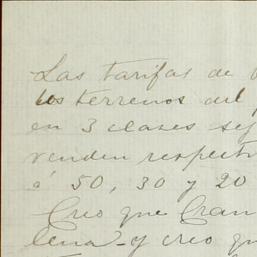 Las tarifas de
los terrenos del
en 3 clases seg
venden respecti
á 50, 30 y 20
Creo que Cran
lena y creo qu